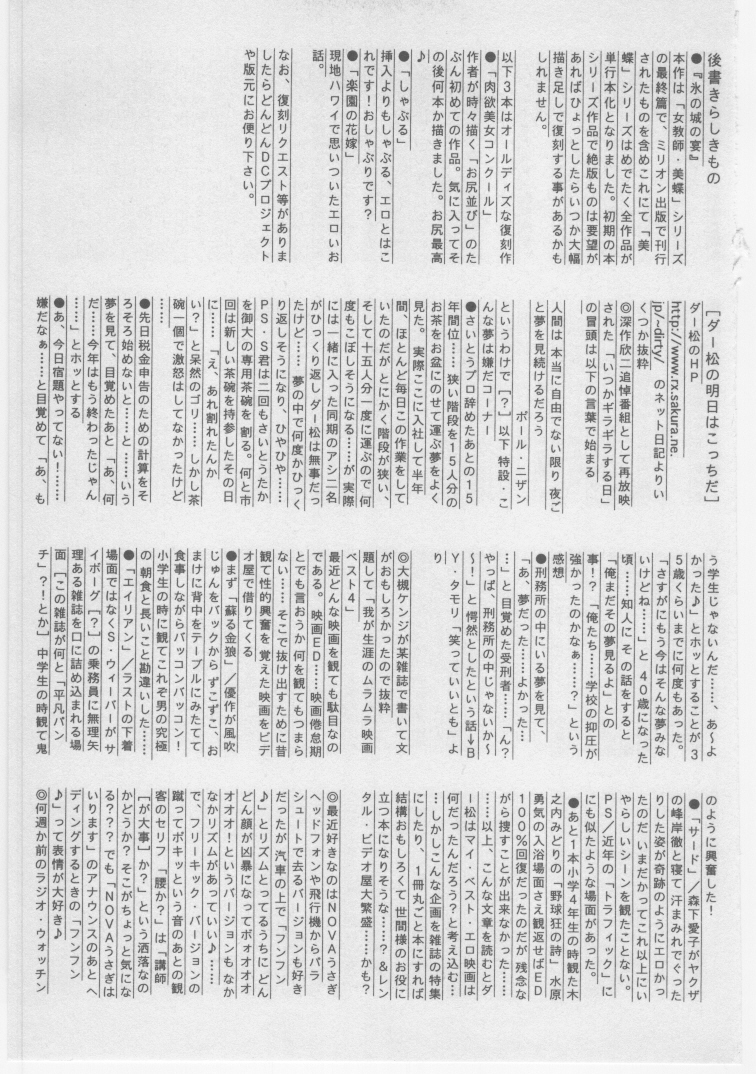 後書きらしきもの
●『氷の城の宴』
本作は「女教師・美蝶」シリーズ
の最終篇で、ミリオン出版で刊行
されたものを含めこれにて「美
蝶」シリーズはめでたく全作品が
単行本化となりました。初期の本
シリーズ作品で絶版ものは要望が
あればひょっとしたらいつか大幅
描き足しで復刻する事があるかも
しれません。
以下3本はオールディズな復刻作
●「肉欲美女コンクール」
作者が時々描く「お尻並び」のた
ぶん初めての作品。気に入ってそ
の後何本か描きました。お尻最高
♪
●「しゃぶる」
挿入よりもしゃぶる、エロとはこ
れです！おしゃぶりです？
●「楽園の花嫁」
現地ハワイで思いついたエロいお
話。
なお、復刻リクエスト等がありま
したらどんどんDCプロジェクト
や版元にお便り下さい。
［ダー松の明日はこっちだ］
ダー松のHP
http://www.rx.sakura.ne.
jp/~dirty/ のネット日記よりい
くつか抜粋
◎深作欣二追悼番組として再放映
された「いつかギラギラする日」
の冒頭は以下の言葉で始まる
人間は 本当に自由でない限り 夜ご
と夢を見続けるだろう
ポール・ニザン
というわけで［？］以下 特設・こ
んな夢は嫌だコーナー
●さいとうプロ辞めたあとの15
年間位…… 狭い階段を15人分の
お茶をお盆にのせて運ぶ夢をよく
見た。実際ここに入社して半年
間、ほとんど毎日この作業をして
いたのだが、とにかく階段が狭い、
そして十五人分一度に運ぶので何
度もこぼしそうになる……が 実際
には一緒に入った同期のアシ二名
がひっくり返しダー松は無事だっ
たけど…… 夢の中で何度かひっく
り返しそうになり、ひやひや……
PS・S君は二回もさいとうたか
を御大の専用茶碗を割る。何と市
回は新しい茶碗を持参したその日
に…… 「え、あれ割れたんか
い？」と呆然のゴリ……しかし茶
碗一個で激怒はしてなかったけど
……
●先日税金申告のための計算をそ
ろそろ始めないと……と ……いう
夢を見て、目覚めたあと「あ、何
だ……今年はもう終わったじゃん
……」とホッとする
●あ、今日宿題やってない！……
嫌だなぁ……と目覚めて「あ、も
う学生じゃないんだ……、あ～よ
かった♪」とホッとすることが3
5歳くらいまでに何度もあった。
「さすがにもう今はそんな夢みな
いけどね……」と 40歳になった
頃……知人に その話をすると
「俺まだその夢見るよ」との
事！？「俺たち……学校の抑圧が
強かったのかなぁ……？」という
感想
●刑務所の中にいる夢を見て、
「あ、夢だった……よかった…
…」と目覚めた受刑者……「ん？
やっぱ、刑務所の中じゃないか～
～！」と愕然としたという話→B
Y・タモリ「笑っていいとも」よ
り
◎大槻ケンジが某雑誌で書いて文
がおもしろかったので抜粋
題して「我が生涯のムラムラ映画
ベスト4」
最近どんな映画を観ても駄目なの
である。映画ED……映画倦怠期
とでも言おうか 何を観てもつまら
ない…… そこで抜け出すために昔
観て性的興奮を覚えた映画をビデ
オ屋で借りてくる
●まず「蘇る金狼」／優作が風吹
じゅんをバックから ずこずこ、お
まけに背中をテーブルにみたてて
食事しながらバッコンバッコン！
小学生の時に観てこれぞ男の究極
の朝食と長いこと勘違いした……
●「エイリアン」／ラストの下着
場面ではなくS・ウィーバーがサ
イボーグ［？］の乗務員に無理矢
理ある雑誌を口に詰め込まれる場
面 ［この雑誌が何と「平凡パン
チ」？！とか］中学生の時観て鬼
のように興奮した！
●「サード」／森下愛子がヤクザ
の峰岸徹と寝て 汗まみれでぐった
りした姿が奇跡のようにエロかっ
たのだ いまだかってこれ以上にい
やらしいシーンを観たことない。
PS／近年の「トラフィック」に
にも似たような場面があった。
●あと1本小学4年生の時観た木
之内みどりの「野球狂の詩」水原
勇気の入浴場面さえ観返せばED
100％回復だったのだが 残念な
がら捜すことが出来なかった……
……以上、こんな文章を読むとダ
ー松はマイ・ベスト・エロ映画は
何だったんだろう？と考え込む…
…しかしこんな企画を雑誌の特集
にしたり、1冊丸ごと本にすれば
結構おもしろくて 世間様のお役に
立つ本になりそうな……？＆レン
タル・ビデオ屋大繁盛……かも？
◎最近好きなのはNOVAうさぎ
ヘッドフォンや飛行機からパラ
シュートで去るバージョンも好き
だったが 汽車の上で「フンフン
♪」とリズムとってるうちに どん
どん顔が凶暴になってボォオオオ
オオオ！というバージョンも なか
なかリズムがあっていい♪……
で、フリーキック・バージョンの
蹴ってボキッという音のあとの観
客のセリフ 「腰か？」は「講師
［が大事］か？」という洒落なの
かどうか？ そこがちょっと気にな
る？？？ でも「NOVAうさぎは
いります」のアナウンスのあと ヘ
ディングするときの「フンフン
♪」って表情が大好き♪
◎何週か前のラジオ・ウォッチン